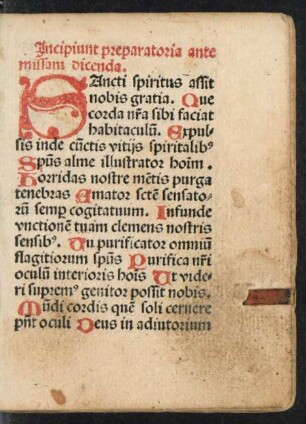 Incipiunt preparatoria ante
missam dicenda.
SAncti spiritus assit
nobis gratia. Que
corda nr̃a sibi faciat
habitaculũ. Expul-
sis inde cũctis vitijs spiritalibꝰ
Spũs alme illustrator hoĩm.
Horridas nostre mẽtis purga
tenebras Amator sctẽ sensato-
rũ semꝑ cogitatuum. Infunde
vnctionẽ tuam clemens nostris
sensibꝰ. Tu purificator omniũ
flagitiorum spũs Purifica nr̃i
oculũ interioris hoĩs Ut vide-
ri supremꝰ genitor possit nobis.
Mũdi cordis quẽ soli cernere
pñt oculi Deus in adiutorium